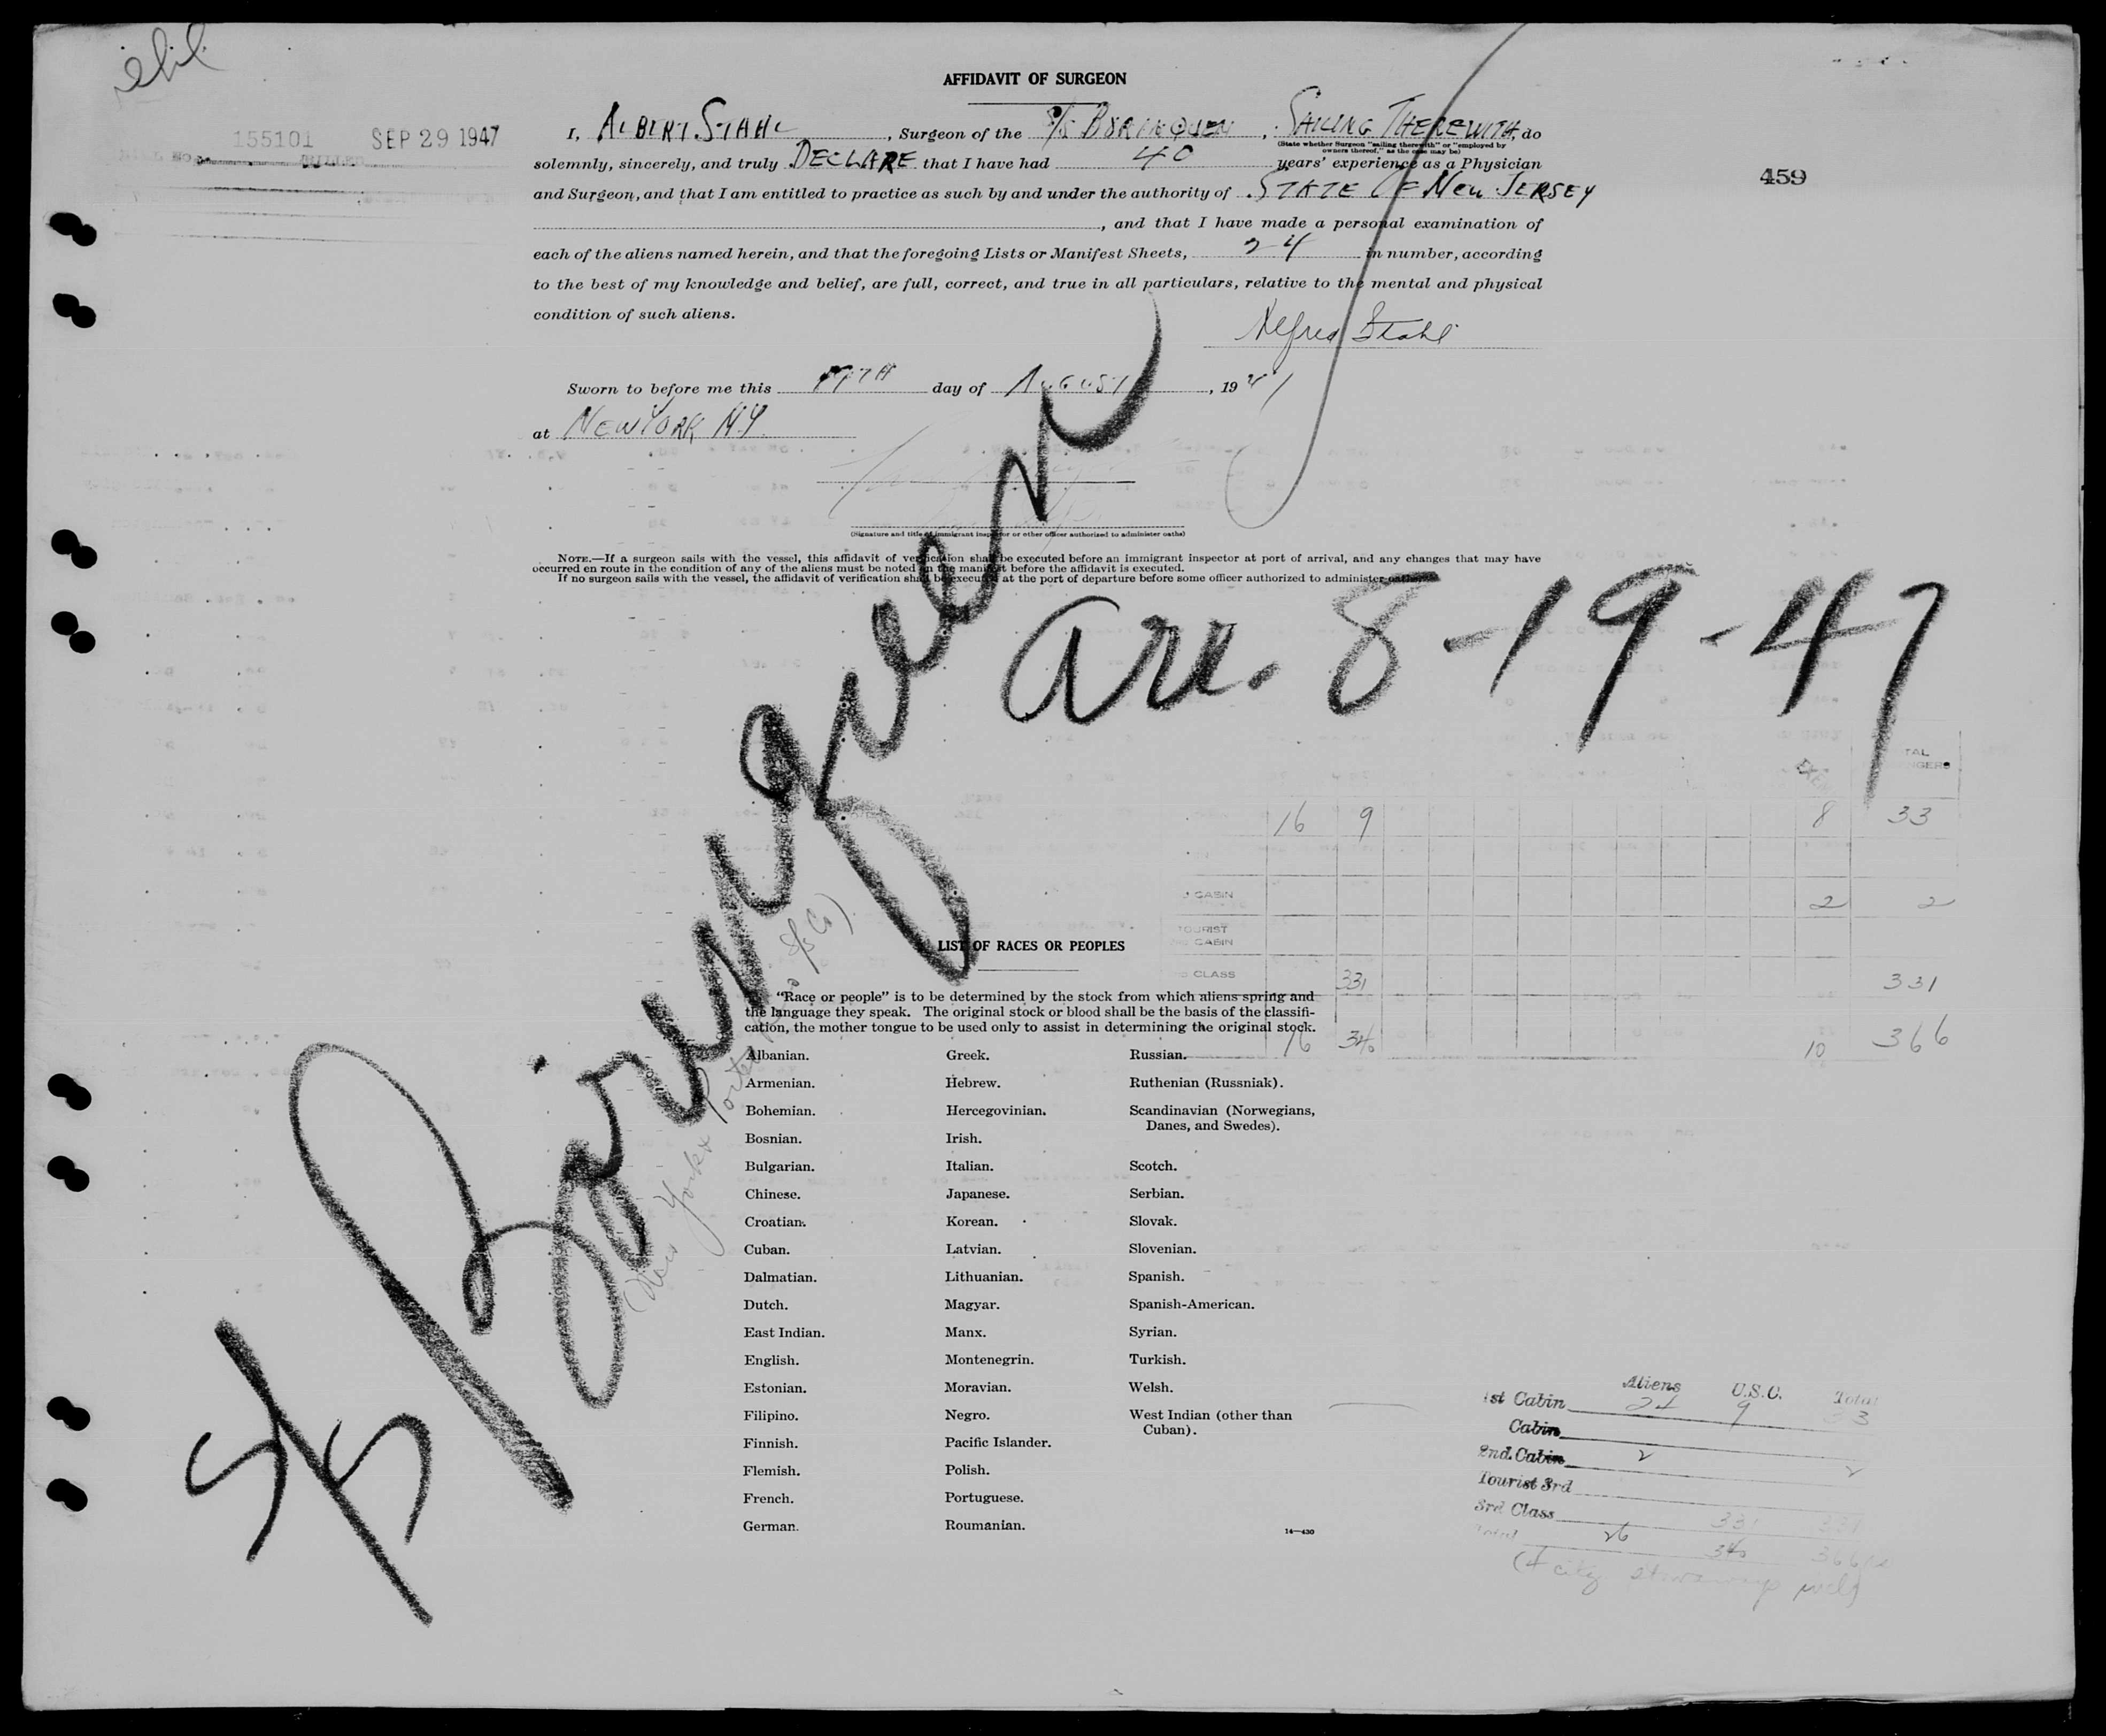 AFFIDAVIT OF SURGEON
155101 SEP 29 1947
BILLED
459
I, ALBERT STAHL, Surgeon of the S/S BORINQUEN, SAILING THEREWITH, do
(State whether Surgeon "sailing therewith" or "employed by
owners thereof," as the case may be)
solemnly, sincerely, and truly DECLARE that I have had 40 years' experience as a Physician
and Surgeon, and that I am entitled to practice as such by and under the authority of STATE OF NEW JERSEY
, and that I have made a personal examination of
each of the aliens named herein, and that the foregoing Lists or Manifest Sheets, 24 in number, according
to the best of my knowledge and belief, are full, correct, and true in all particulars, relative to the mental and physical
condition of such aliens.
Alfred Stahl
Sworn to before me this day of AUGUST, 19
at NEW YORK NY
(Signature and title of immigrant inspector or other officer authorized to administer oaths)
NOTE.—If a surgeon sails with the vessel, this affidavit of verification shall be executed before an immigrant inspector at port of arrival, and any changes that may have
occurred en route in the condition of any of the aliens must be noted on the manifest before the affidavit is executed.
If no surgeon sails with the vessel, the affidavit of verification shall be executed at the port of departure before some officer authorized to administer oaths.
S/S Borinquen
arr. 8-19-47
16 9 8 33
CABIN 2 2
TOURIST
CABIN
CLASS 331 331
16 340 10 366
LIST OF RACES OR PEOPLES
"Race or people" is to be determined by the stock from which aliens spring and
the language they speak. The original stock or blood shall be the basis of the classifi-
cation, the mother tongue to be used only to assist in determining the original stock.
Albanian. Greek. Russian.
Armenian. Hebrew. Ruthenian (Russniak).
Bohemian. Hercegovinian. Scandinavian (Norwegians,
Danes, and Swedes).
Bosnian. Irish.
Bulgarian. Italian. Scotch.
Chinese. Japanese. Serbian.
Croatian. Korean. Slovak.
Cuban. Latvian. Slovenian.
Dalmatian. Lithuanian. Spanish.
Dutch. Magyar. Spanish-American.
East Indian. Manx. Syrian.
English. Montenegrin. Turkish.
Estonian. Moravian. Welsh.
Filipino. Negro. West Indian (other than
Cuban).
Finnish. Pacific Islander.
Flemish. Polish.
French. Portuguese.
German. Roumanian.
14—430
Aliens U.S.C. Total
1st Cabin 24 9 33
Cabin
2nd. Cabin 2 2
Tourist 3rd
3rd Class 331 331
Total 26 340 366